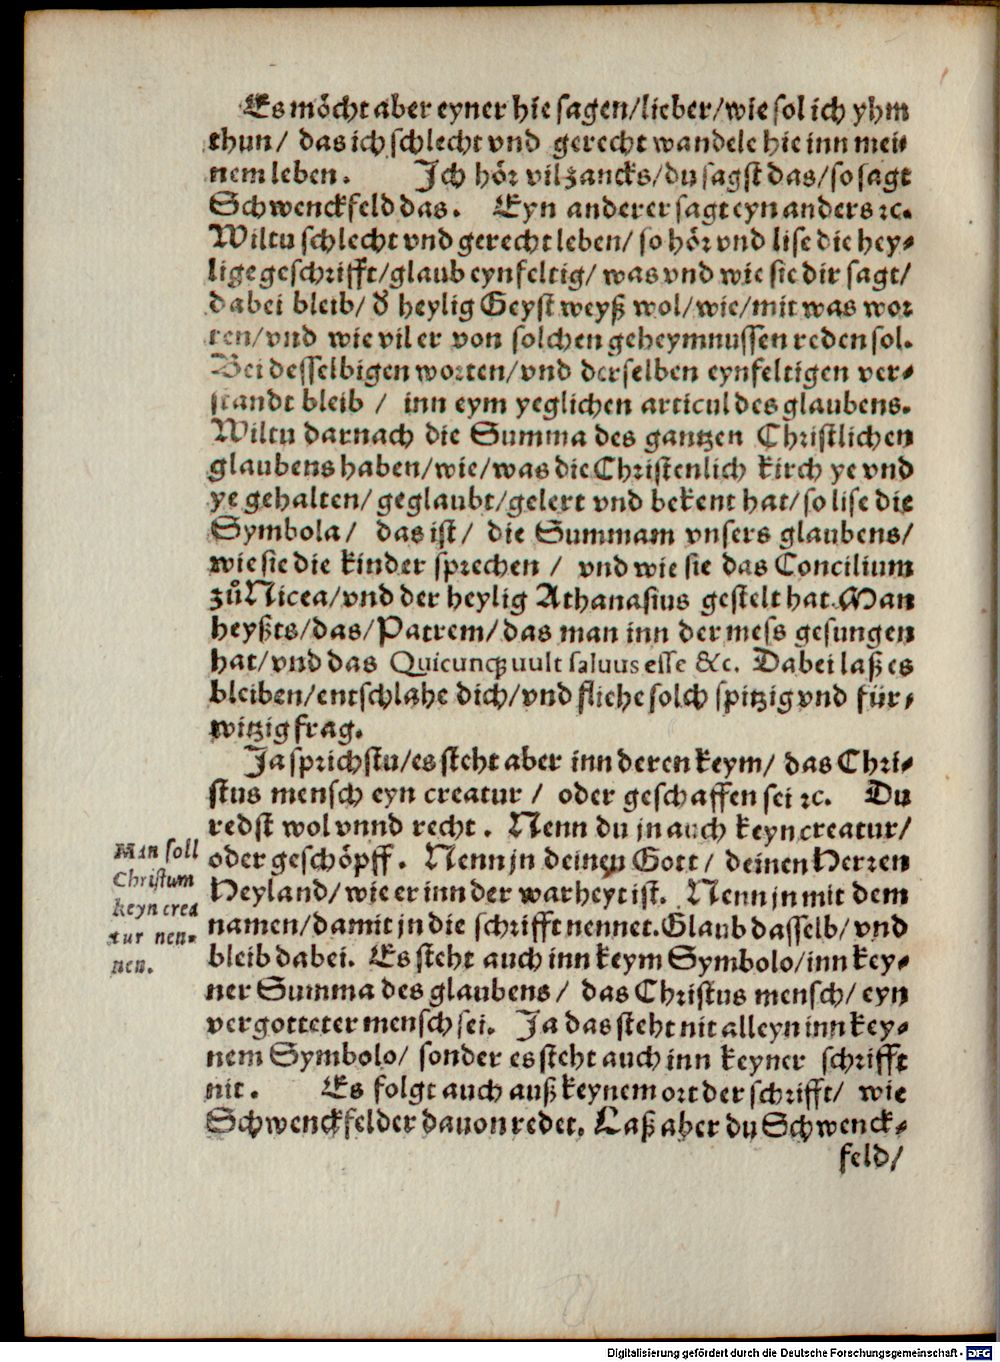 Es möcht aber eyner hie sagen/lieber/wie sol ich yhm
thun/ das ich schlecht vnd gerecht wandele hie inn mei⸗
nem leben. Ich hör vil zancks/du sagst das/so sagt
Schwenckfeld das. Eyn anderer sagt eyn anders ꝛc.
Wiltu schlecht vnd gerecht leben/ so hör vnd lise die hey⸗
lige geschrifft/glaub eynfeltig/ was vnd wie sie dir sagt/
dabei bleib/ d̕ heylig Geyst weyß wol/wie/mit was wor
ten/vnd wie vil er von solchen geheymnussen reden sol.
Bei desselbigen worten/vnd derselben eynfeltigen ver⸗
standt bleib / inn eym yeglichen articul des glaubens.
Wiltu darnach die Summa des gantzen Christlichen
glaubens haben/wie/was die Christenlich kirch ye vnd
ye gehalten/ geglaubt/gelert vnd bekent hat/so lise die
Symbola/ das ist/ die Summam vnsers glaubens/
wie sie die kinder sprechen / vnd wie sie das Concilium
zů Nicea/vnd der heylig Athanasius gestelt hat. Man
heyßts/das/Patrem/das man inn der mess gesungen
hat/vnd das Quicunqꝫ uult saluus esse &c. Dabei laß es
bleiben/entschlahe dich/vnd fliehe solch spitzig vnd für⸗
witzig frag.
Ja sprichstu/es steht aber inn deren keym/ das Chri⸗
stus mensch eyn creatur / oder geschaffen sei ꝛc. Du
redst wol vnnd recht. Nenn du jn auch keyn creatur/
oder geschöpff. Nenn jn deinen Gott/ deinen Herren
Heyland/ wie er inn der warheyt ist. Nenn jn mit dem
namen/damit jn die schrifft nennet. Glaub dasselb/ vnd
bleib dabei. Es steht auch inn keym Symbolo/inn key⸗
ner Summa des glaubens/ das Christus mensch/ eyn
vergotteter mensch sei. Ja das steht nit alleyn inn key⸗
nem Symbolo/ sonder es steht auch inn keyner schrifft
nit. Es folgt auch auß keynem ort der schrifft/ wie
Schwenckfelder dauon redet. Laß aber du Schwenck⸗
feld/
Man soll
Christum
keyn crea
tur nen⸗
nen.
Digitalisierung gefördert durch die Deutsche Forschungsgemeinschaft - DFG